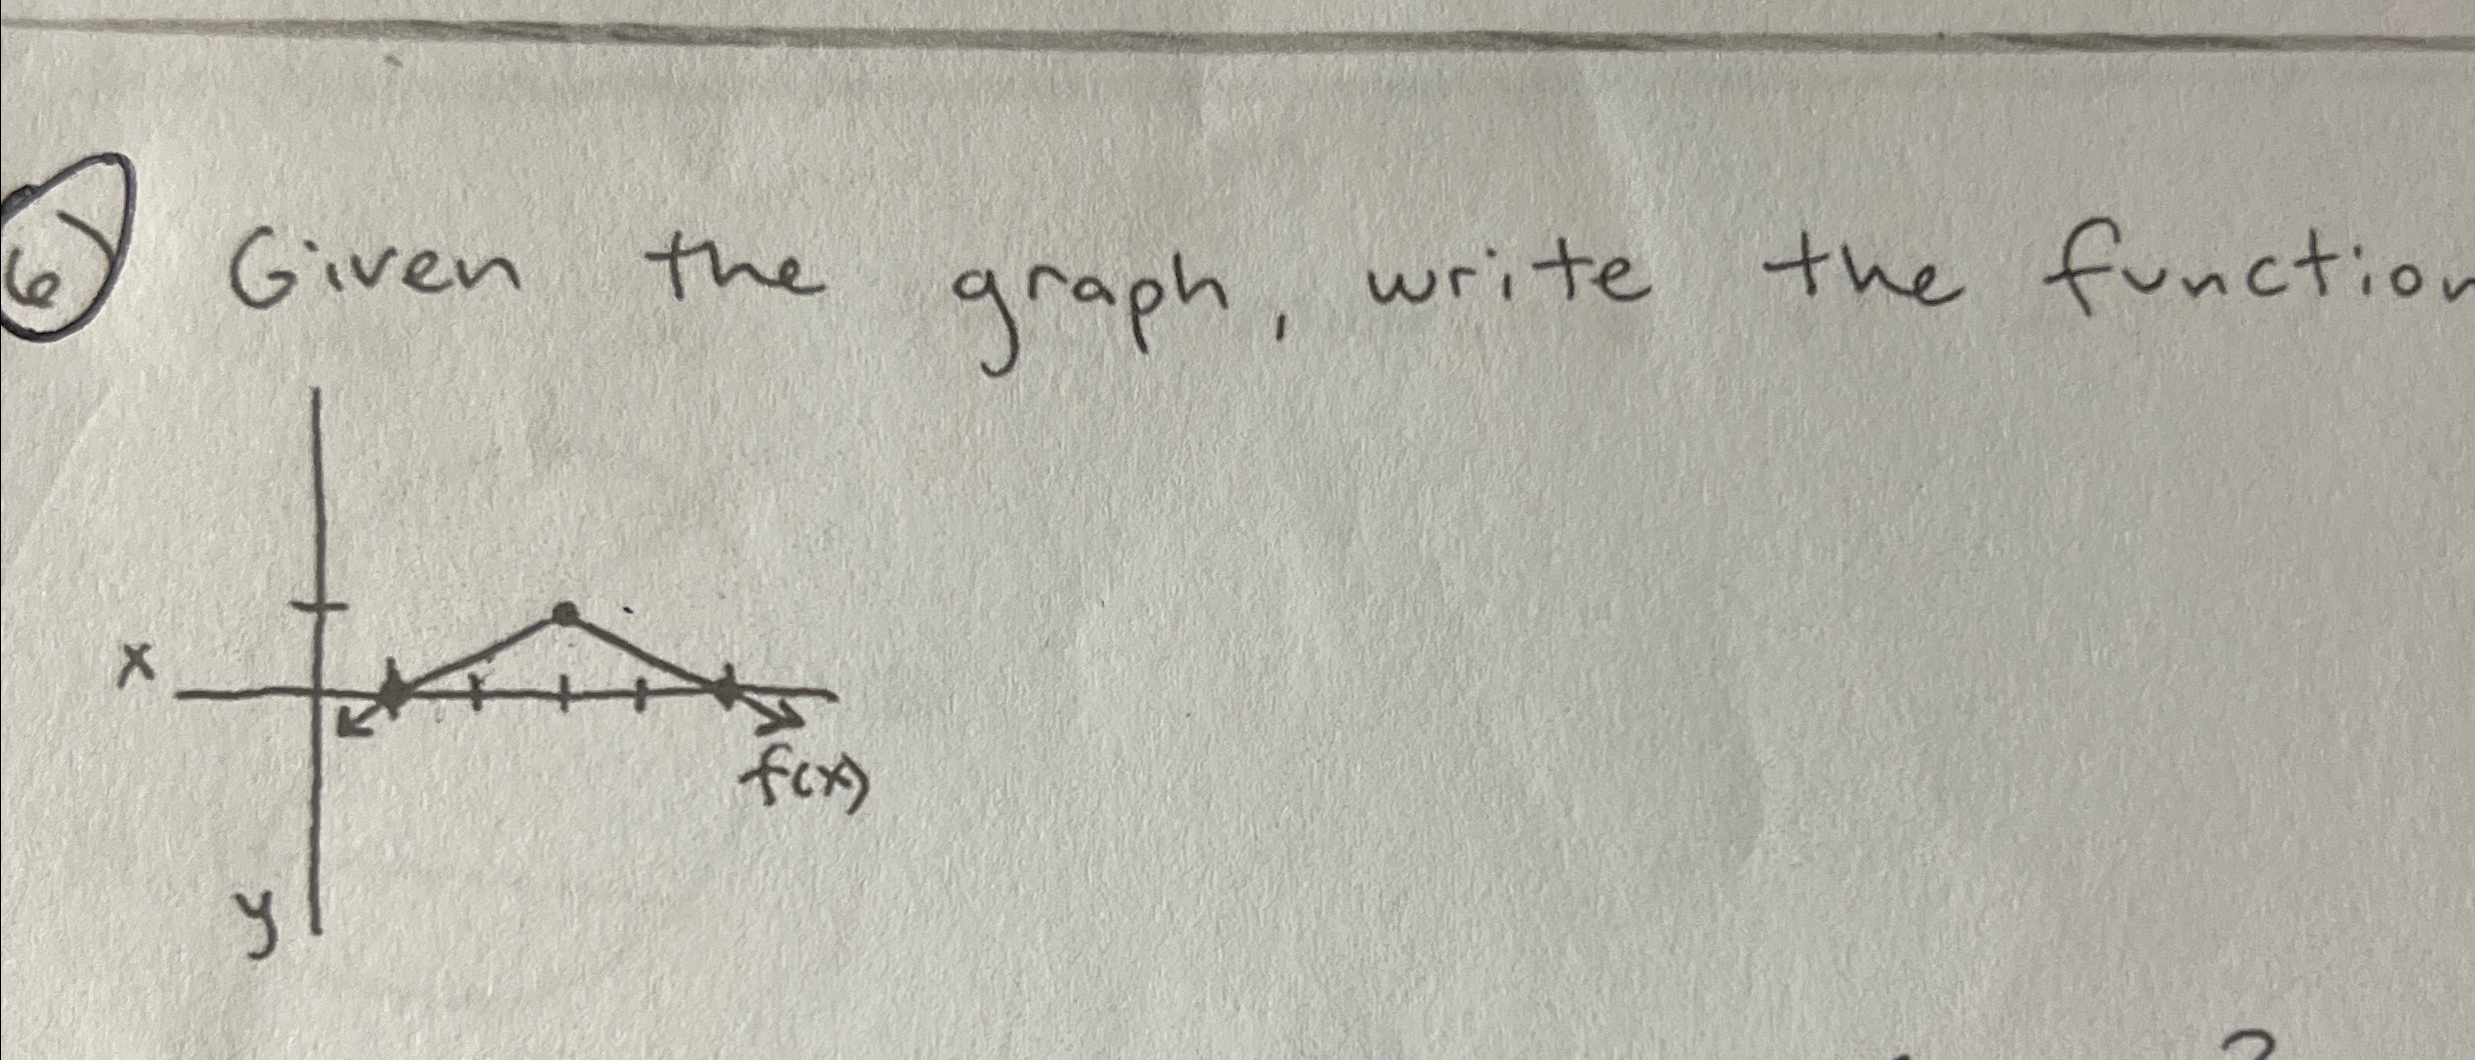 6) Given the graph, write the function
x
f(x)
y
?